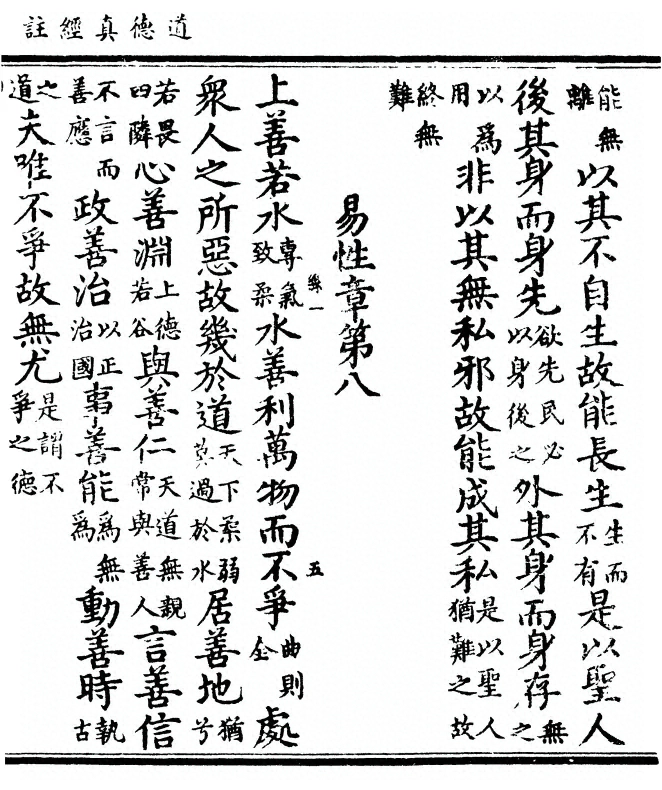 道德真經註
能無離以其不自生故能長生生而不有是以聖人
後其身而身先欲先民必以身後之外其身而身存無之
以為用非以其無私邪故能成其私是以聖人猶難之故
終無難
易性章第八
上善若水專氣致柔水善利萬物而不爭曲則全處
絲一
五
衆人之所惡故幾於道天下柔弱莫過於水居善地猶兮
若畏四隣心善淵上德若谷與善仁天道無親常與善人言善信
不言而善應政善治以正治國事善能為無為動善時執古
之道夫唯不爭故無尤是謂不爭之德